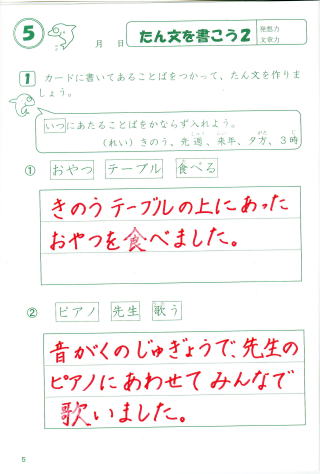 5
月　日
たん文を書こう2
発想力
文章力
1 カードに書いてあることばをつかって、たん文を作りま
しょう。
いつにあたることばをかならず入れよう。
（れい）きのう、先週、来年、夕方、3時
① おやつ　テーブル　食べる
きのうテーブルの上にあった
おやつを食べました。
② ピアノ　先生　歌う
音がくのじゅぎょうで、先生の
ピアノにあわせてみんなで
歌いました。
5